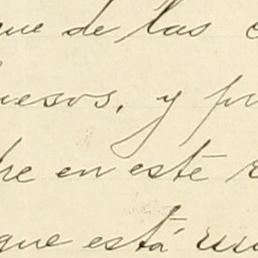 que de las
uesos, y
re en este
que está